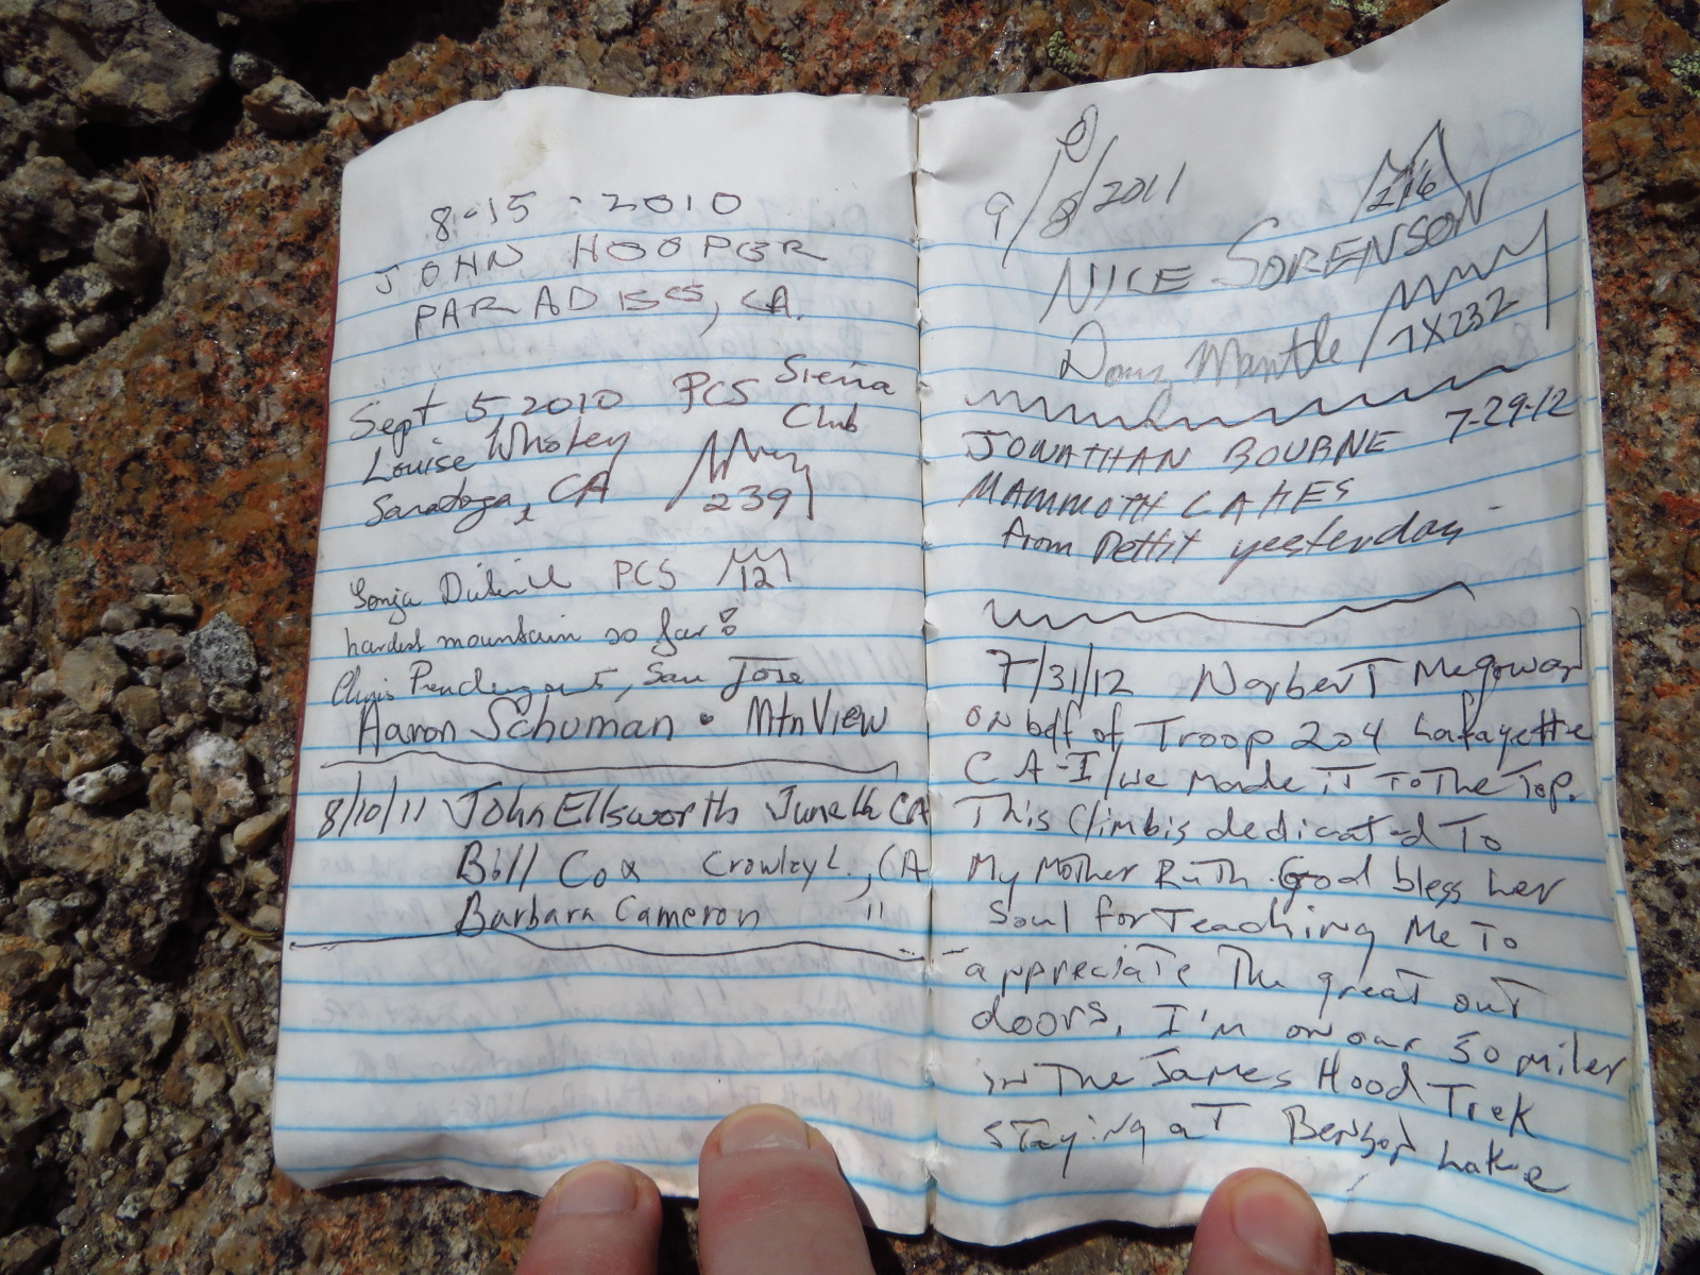 8-15-2010
JOHN HOOPER
PARADISES, CA.
Sept 5, 2010 PCS Sierra
Club
Louise Wholey
Saratoga, CA 239
Sonja PCS 12
hardest mountain so far
Chris Prendergast, San Jose
Aaron Schuman • Mtn View
8/10/11 John Ellsworth June Lk CA
Bill Cox Crowley L., CA
Barbara Cameron "
9/8/2011
216
SORENSON
Doug Mantle 7X232
JONATHAN BOURNE 7-29-12
MAMMOTH LAKES
from Pettit yesterday
7/31/12 Norbert McGowan
on of Troop 204 Lafayette
CA-I/we Made iT To The Top.
This Climb is dedicated To
My Mother Ruth. God bless her
Soul for Teaching Me To
appreciate The great out
doors. I'm on our 50 miler
in The James Hood Trek
staying at Lake